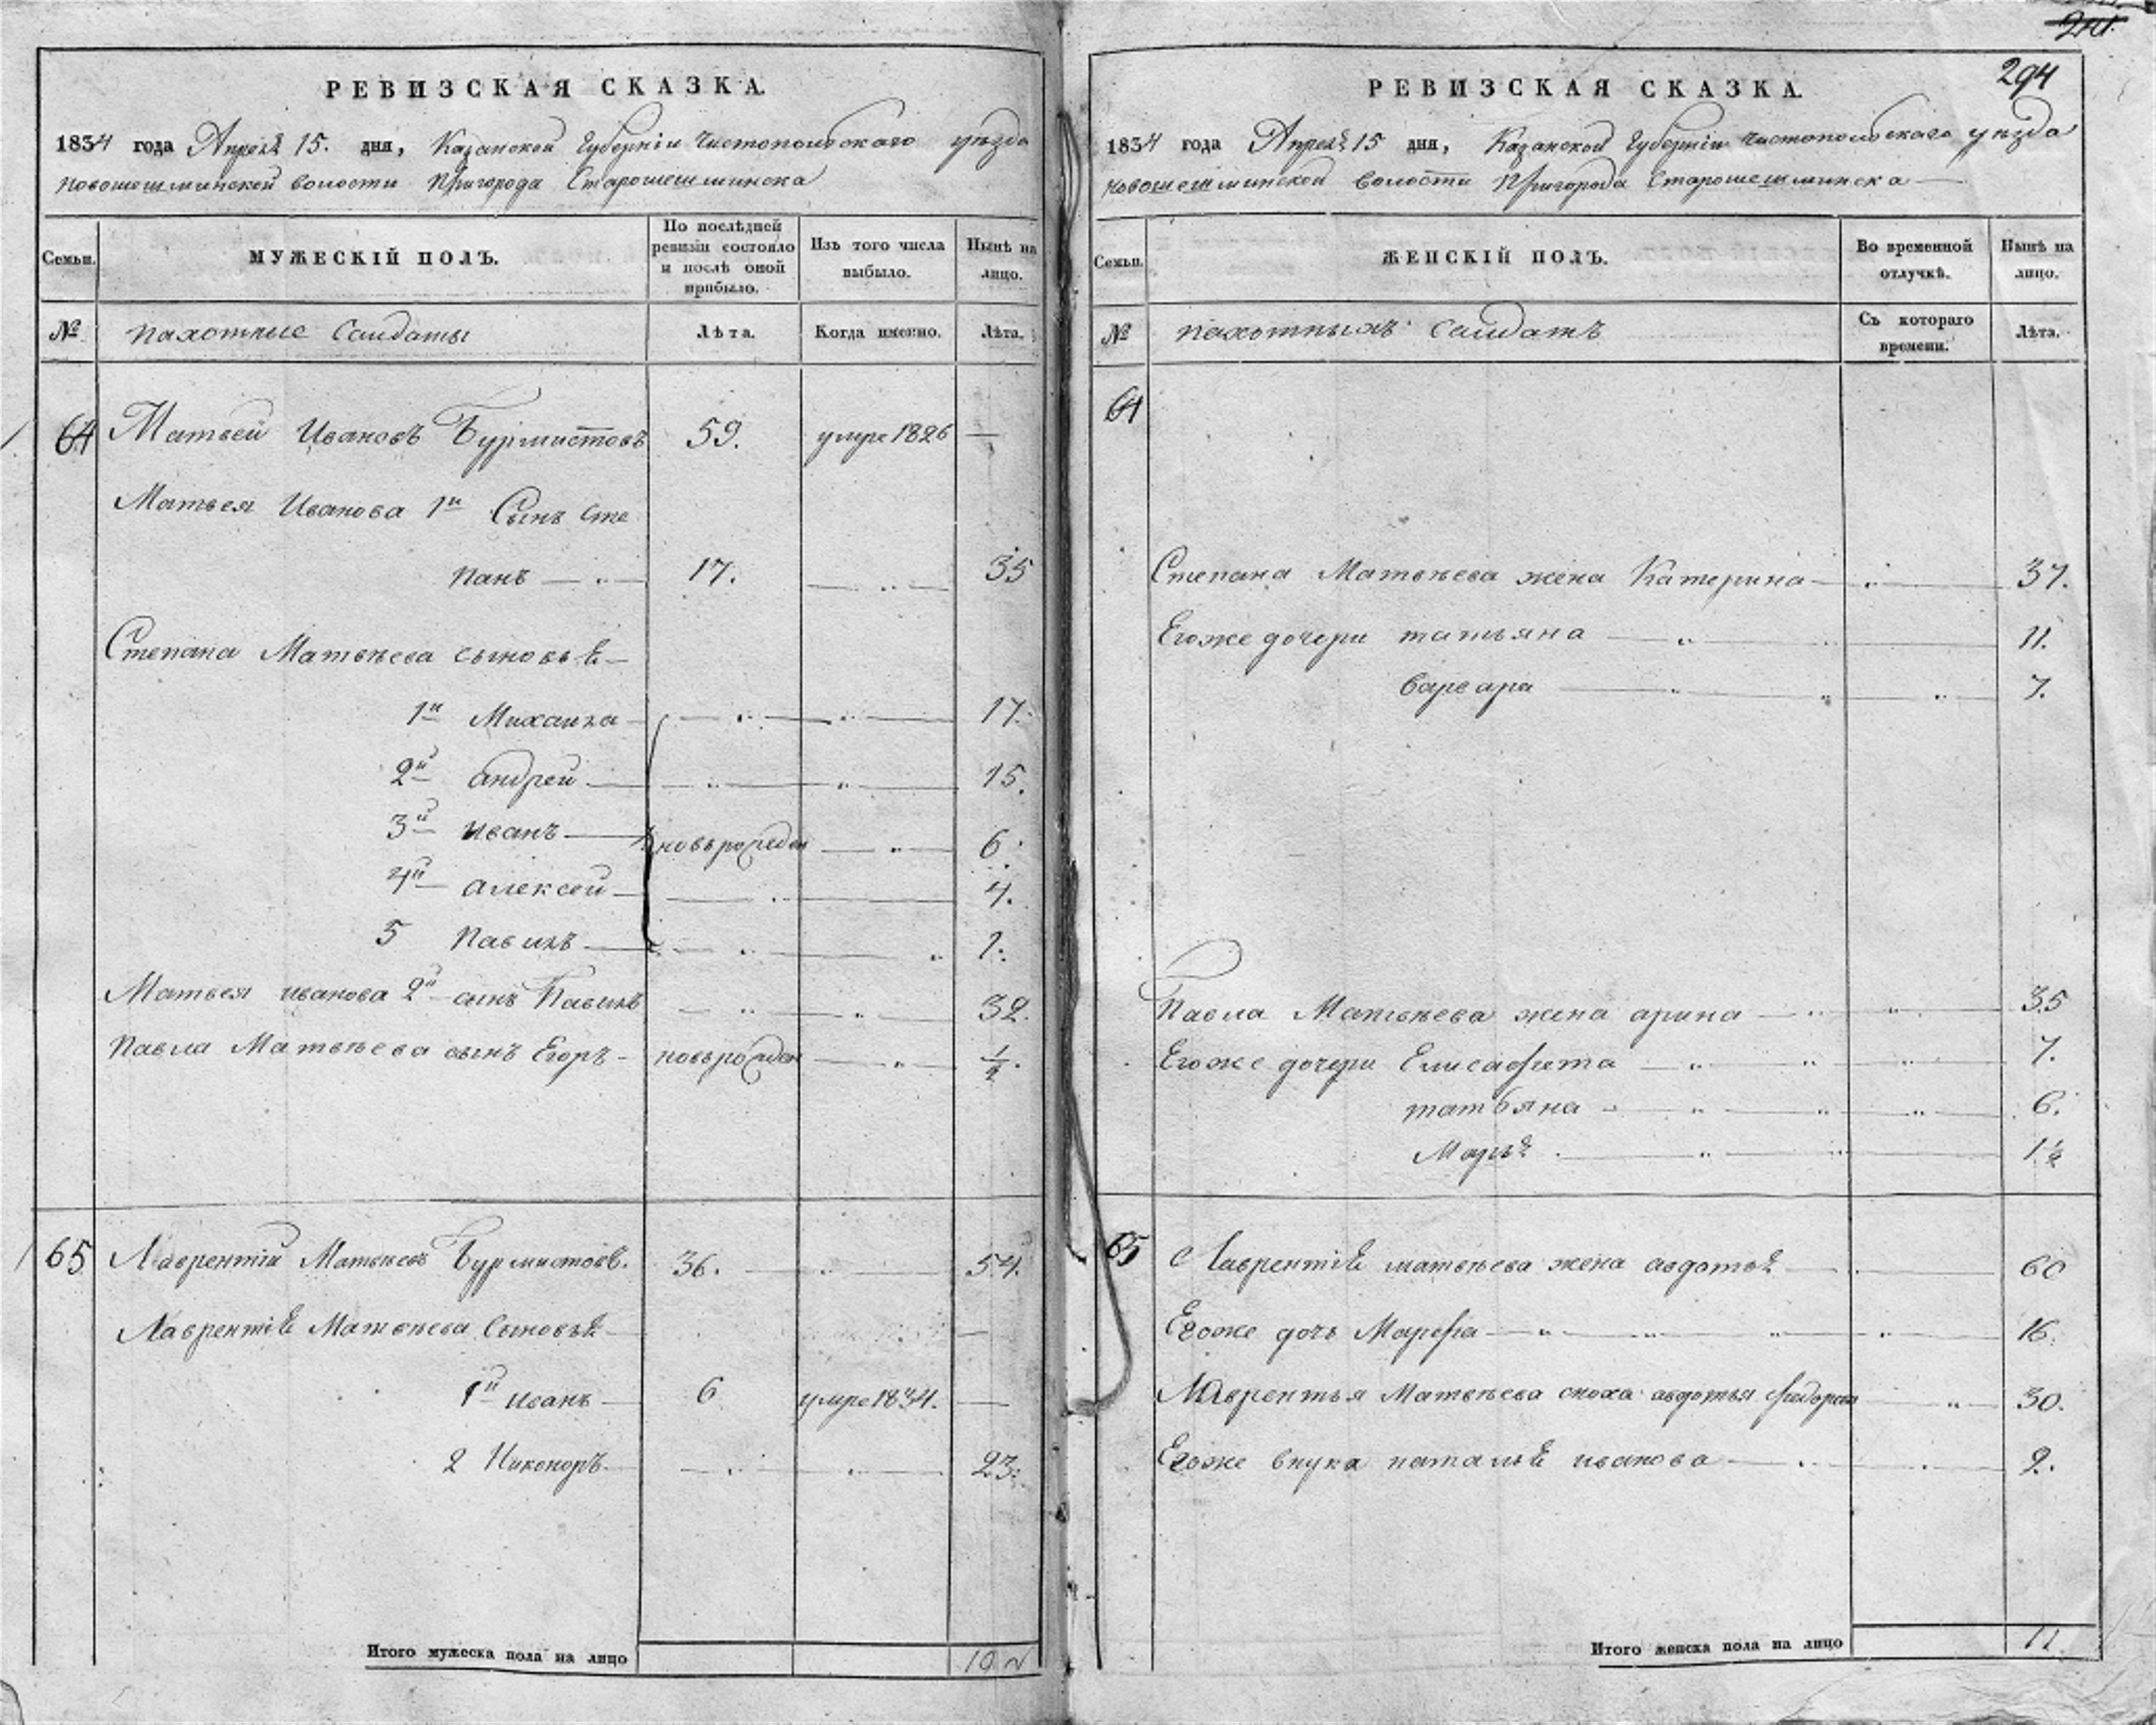 РЕВИЗСКАЯ СКАЗКА.
1834 года Апреля 15. дня, Казанской Губернiи Чистопольскаго уезда
Новошешминской волости Пригорода Старошешминска
Семьи.
МУЖЕСКІЙ ПОЛЪ.
По послѣдней ревизіи состояло и послѣ оной прибыло.
Изъ того числа выбыло.
Нынѣ на лицо.
№ пахотные Солдаты Лѣта. Когда именно. Лѣта.
64 Матвей Ивановъ Бурмистовъ 59. умре 1826 —
Матвея Иванова 1й Сынъ Сте
панъ 17. 35
Степана Матвѣева сыновья
1й Михаила 17.
2й андрей 15.
3й иванъ новърожден 6.
4й алексей 4.
5 Павилъ 1.
Матвея иванова 2й сынъ Павилъ 32.
Павла Матвѣева сынъ Егоръ новърожден ½.
65 Лаврентий Матвѣевъ Бурмистовъ. 36. 54.
Лаврентія Матвѣева Сыновья
1й иванъ 6 умре 1834. —
2 Никоноръ 23.
Итого мужеска пола на лицо 10
294
РЕВИЗСКАЯ СКАЗКА.
1834 года Апреля 15 дня, Казанской Губернiи Чистопольскаго уезда
Новошешминской волости Пригорода Старошешминска
Семьи.
ЖЕНСКІЙ ПОЛЪ.
Во временной отлучкѣ.
Нынѣ на лицо.
№ пахотныхъ Салдатъ Съ котораго времени. Лѣта.
64
Степана Матвѣева жена Катерина 37.
Егоже дочери татьяна 11.
Варвара 7.
Павла Матвѣева жена арина 35
Егоже дочери Елисафета 7.
татьяна 6.
Марья 1½
65 Лаврентія матвѣева жена авдотья 60
Егоже дочь Марфа 16.
Лаврентья Матвѣева сноха авдотья 30.
Егоже внука наталья иванова 2.
Итого женска пола на лицо 11.